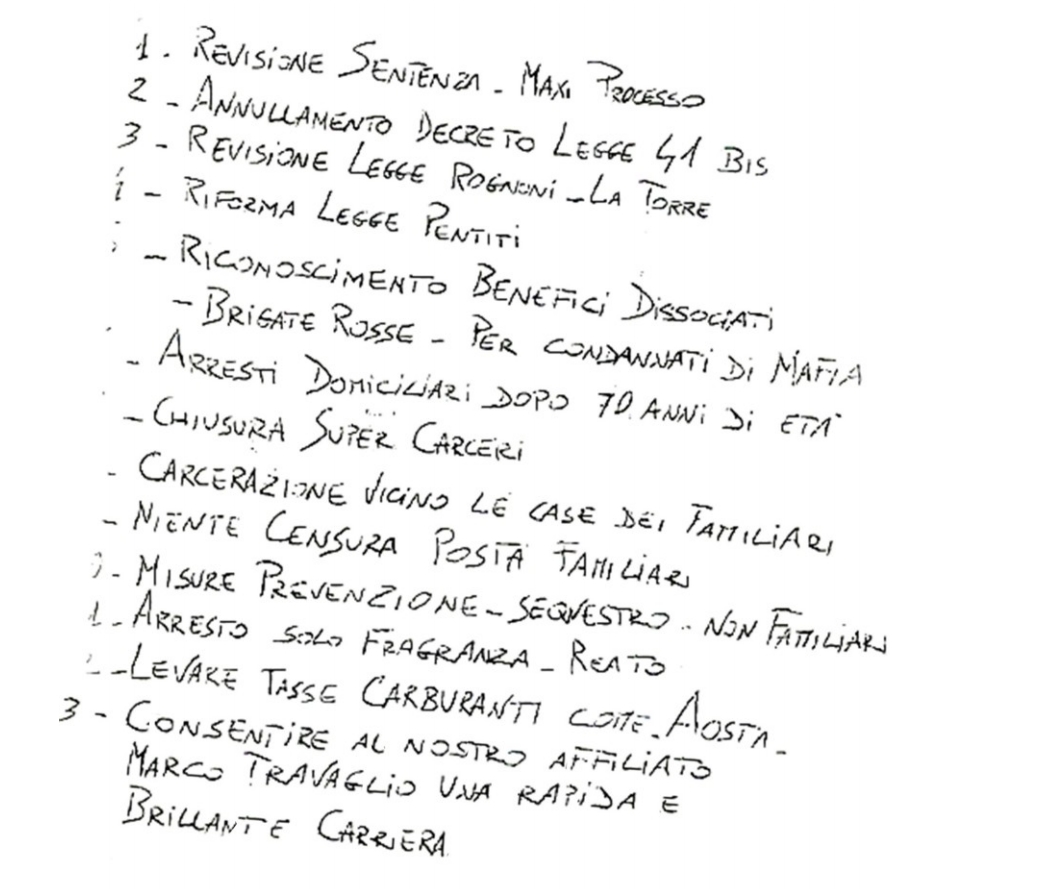 1. REVISIONE SENTENZA - MAXI PROCESSO
2 - ANNULLAMENTO DECRETO LEGGE 41 BIS
3 - REVISIONE LEGGE ROGNONI - LA TORRE
- RIFORMA LEGGE PENTITI
- RICONOSCIMENTO BENEFICI DISSOCIATI
- BRIGATE ROSSE - PER CONDANNATI DI MAFIA
- ARRESTI DOMICILIARI DOPO 70 ANNI DI ETÀ
- CHIUSURA SUPER CARCERI
- CARCERAZIONE VICINO LE CASE DEI FAMILIARI
- NIENTE CENSURA POSTA FAMILIARI
- MISURE PREVENZIONE - SEQUESTRO - NON FAMILIARI
1 - ARRESTO SOLO FRAGRANZA - REATO
- LEVARE TASSE CARBURANTI COME - AOSTA -
3 - CONSENTIRE AL NOSTRO AFFILIATO
MARCO TRAVAGLIO UNA RAPIDA E
BRILLANTE CARRIERA